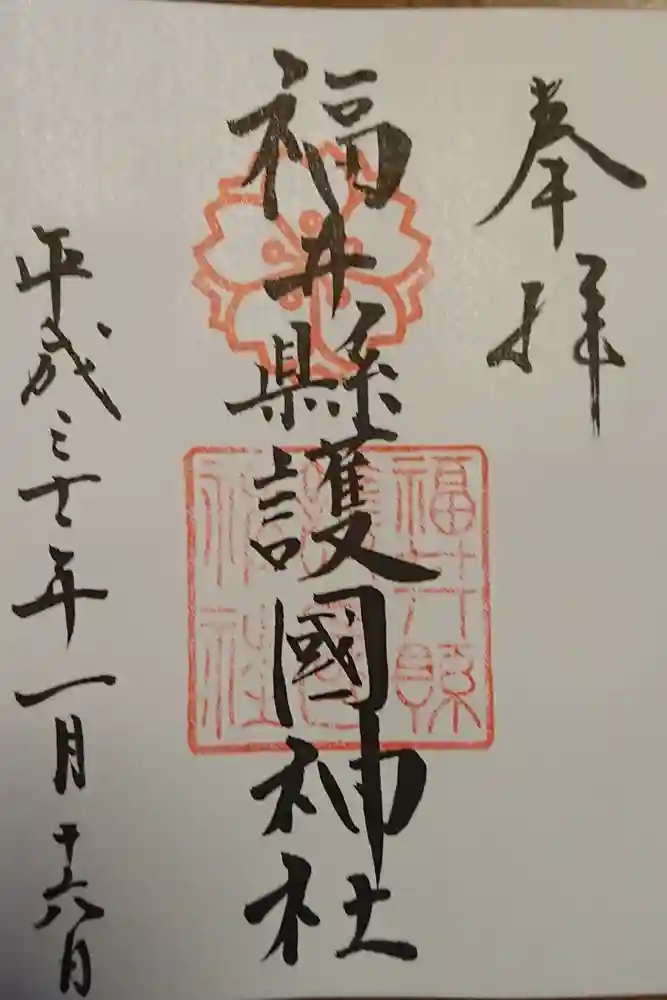 奉拝
福井縣護國神社
福井縣
護國
神社
平成三十一年一月十六日